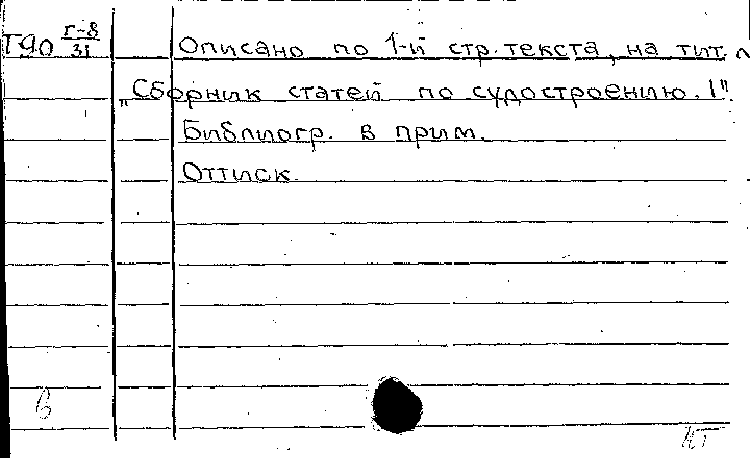 Т90 Г-8/31 Описано по 1-й стр. текста, на тит. л
„Сборник статей по судостроению. 1"
Библиогр. в прим.
Оттиск.
в
КТ